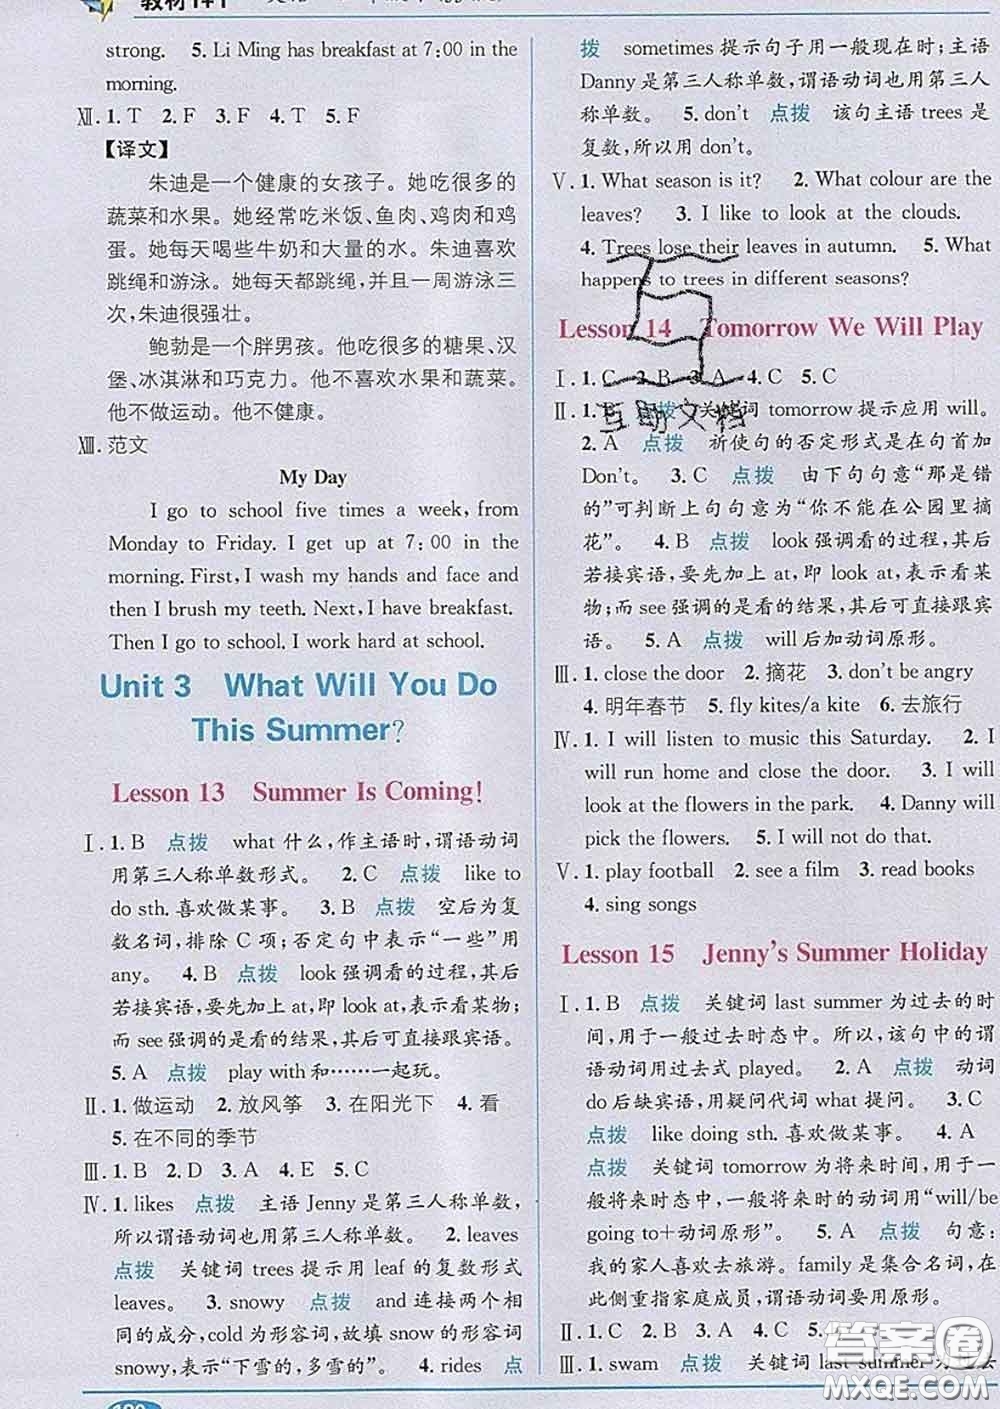 教材1+1
strong. 5. Li Ming has breakfast at 7:00 in the
morning.
Ⅻ. 1. T 2. F 3. F 4. T 5. F
【译文】
朱迪是一个健康的女孩子。她吃很多的
蔬菜和水果。她经常吃米饭、鱼肉、鸡肉和鸡
蛋。她每天喝些牛奶和大量的水。朱迪喜欢
跳绳和游泳。她每天都跳绳,并且一周游泳三
次,朱迪很强壮。
鲍勃是一个胖男孩。他吃很多的糖果、汉
堡、冰淇淋和巧克力。他不喜欢水果和蔬菜。
他不做运动。他不健康。
XIII. 范文
My Day
I go to school five times a week, from
Monday to Friday. I get up at 7:00 in the
morning. First, I wash my hands and face and
then I brush my teeth. Next, I have breakfast.
Then I go to school. I work hard at school.
Unit 3 What Will You Do
This Summer?
Lesson 13 Summer Is Coming!
Ⅰ. 1. B 点拨 what 什么,作主语时,谓语动词
用第三人称单数形式。 2. C 点拨 like to
do sth. 喜欢做某事。 3. B 点拨 空后为复
数名词,排除 C 项;否定句中表示“一些”用
any。 4. B 点拨 look 强调看的过程,其后
若接宾语,要先加上 at,即 look at,表示看某物;
而 see 强调的是看的结果,其后可直接跟宾语。
5. A 点拨 play with 和……一起玩。
Ⅱ. 1. 做运动 2. 放风筝 3. 在阳光下 4. 看
5. 在不同的季节
Ⅲ. 1. B 2. D 3. A 4. E 5. C
Ⅳ. 1. likes 点拨 主语 Jenny 是第三人称单数,
所以谓语动词也用第三人称单数。 2. leaves
点拨 关键词 trees 提示用 leaf 的复数形式
leaves。 3. snowy 点拨 and 连接两个相
同的成分,cold 为形容词,故填 snow 的形容词
snowy,表示“下雪的,多雪的”。 4. rides 点
拨 sometimes 提示句子用一般现在时;主语
Danny 是第三人称单数,谓语动词也用第三人
称单数。 5. don't 点拨 该句主语 trees 是
复数,所以用 don't。
Ⅴ. 1. What season is it? 2. What colour are the
leaves? 3. I like to look at the clouds.
4. Trees lose their leaves in autumn. 5. What
happens to trees in different seasons?
Lesson 14 Tomorrow We Will Play
Ⅰ. 1. C 2. B 3. A 4. C 5. C
Ⅱ. 1. B 点拨 关键词 tomorrow 提示应用 will。
2. A 点拨 祈使句的否定形式是在句首加
Don't。 3. C 点拨 由下句句意“那是错
的”可判断上句句意为“你不能在公园里摘
花”。 4. B 点拨 look 强调看的过程,其后
若接宾语,要先加上 at,即 look at,表示看某
物;而 see 强调的是看的结果,其后可直接跟宾
语。 5. A 点拨 will 后加动词原形。
Ⅲ. 1. close the door 2. 摘花 3. don't be angry
4. 明年春节 5. fly kites/a kite 6. 去旅行
Ⅳ. 1. I will listen to music this Saturday. 2. I
will run home and close the door. 3. I will
look at the flowers in the park. 4. Danny will
pick the flowers. 5. I will not do that.
Ⅴ. 1. play football 2. see a film 3. read books
4. sing songs
Lesson 15 Jenny's Summer Holiday
Ⅰ. 1. B 点拨 关键词 last summer 为过去的时
间,用于一般过去时态中。所以,该句中的谓语
动词用过去式 played。 2. A 点拨 动词
do 后缺宾语,用疑问代词 what 提问。 3. C
点拨 like doing sth. 喜欢做某事。 4. A
点拨 关键词 tomorrow 为将来时间,用于一
般将来时态中,一般将来时的动词用“will/be
going to+动词原形”。 5. A 点拨 句意:
我的家人喜欢去旅游。family 是集合名词,在
此侧重指家庭成员,谓语动词要用原形。
Ⅱ. 1. C 2. B 3. A 4. C 5.
Ⅲ. 1. swam 点拨 关键词 last summer 为过去
互助文档
答案圈
MXQE.COM